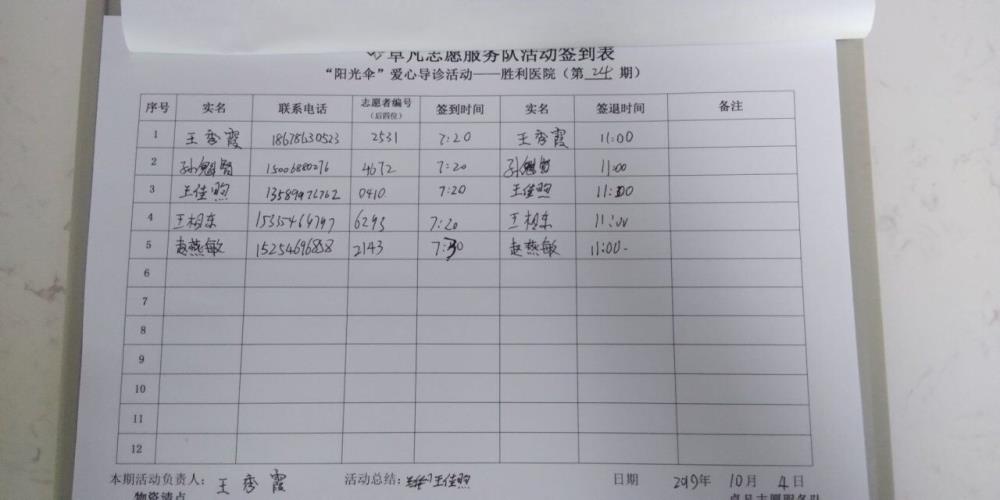 卓凡志愿服务队活动签到表
“阳光伞”爱心导诊活动——胜利医院（第 24 期）
序号 实名 联系电话 志愿者编号（后四位） 签到时间 实名 签退时间 备注
1 王秀霞 18678630523 2531 7:20 王秀霞 11:00
2 孙 15006880276 4672 7:20 孙 11:00
3 王佳照 13589976762 0410 7:20 王佳照 11:00
4 王相东 6293 7:20 王相东 11:00
5 赵燕敏 15254696858 2143 7:30 赵燕敏 11:00
6
7
8
9
10
11
12
本期活动负责人： 王秀霞 活动总结： 王佳照 日期 2019年 10月 4日
物资清点 卓凡志愿服务队